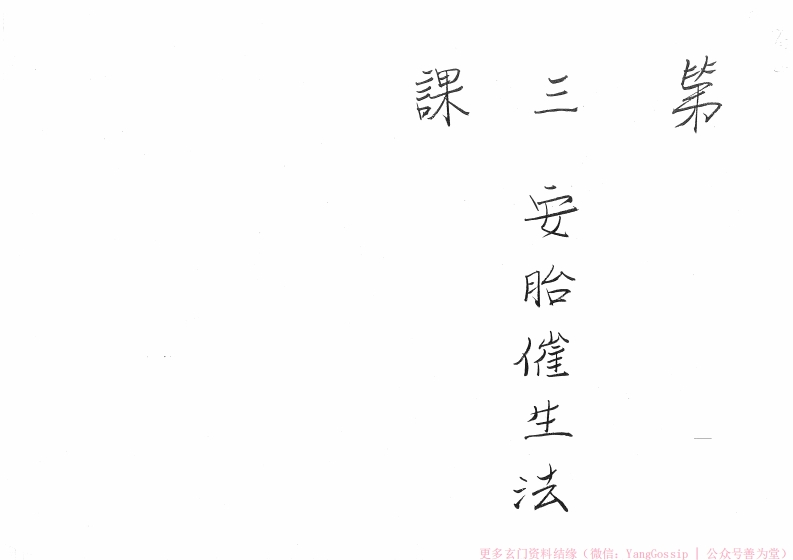 第三課
安胎催生法
更多玄门资料结缘（微信：YangGossip | 公众号善为堂）